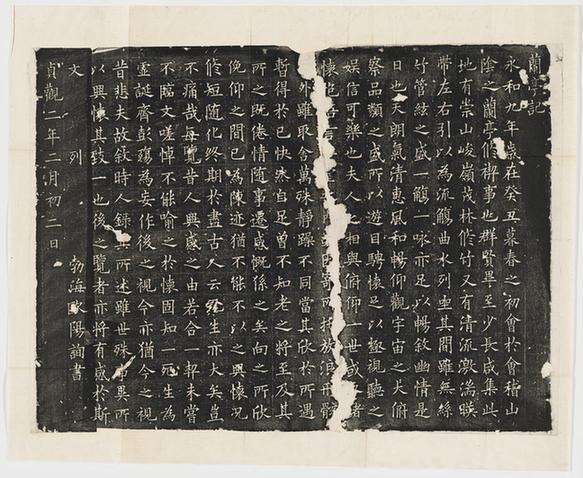 蘭亭記
永和九年歲在癸丑暮春之初會於會稽山
陰之蘭亭脩禊事也群賢畢至少長咸集此
地有崇山峻嶺茂林脩竹又有清流激湍暎
帶左右引以為流觴曲水列坐其間雖無絲
竹管絃之盛一觴一咏亦足以暢敘幽情是
日也天朗氣清惠風和暢仰觀宇宙之大俯
察品類之盛所以遊目騁懷足以極視聽之
娛信可樂也夫人之相與俯仰一世或諸
懷言託放浪形骸
外雖取舍萬殊靜躁不同當其欣於所遇
暫得於己快然自足曾不知老之將至及其
所之既倦情隨事遷感慨係之矣向之所欣
俛仰之間已為陳迹猶不能不以之興懷況
脩短隨化終期於盡古人云死生亦大矣豈
不痛哉每覽昔人興感之由若合一契未嘗
不臨文嗟悼不能喻之於懷固知一死生為
虛誕齊彭殤為妄作後之視今亦猶今之視
昔悲夫故敘時人錄所述雖世殊事異所
以興懷其致一也後之覽者亦將有感於斯
文 列 勃海歐陽詢書
貞觀二年二月初二日